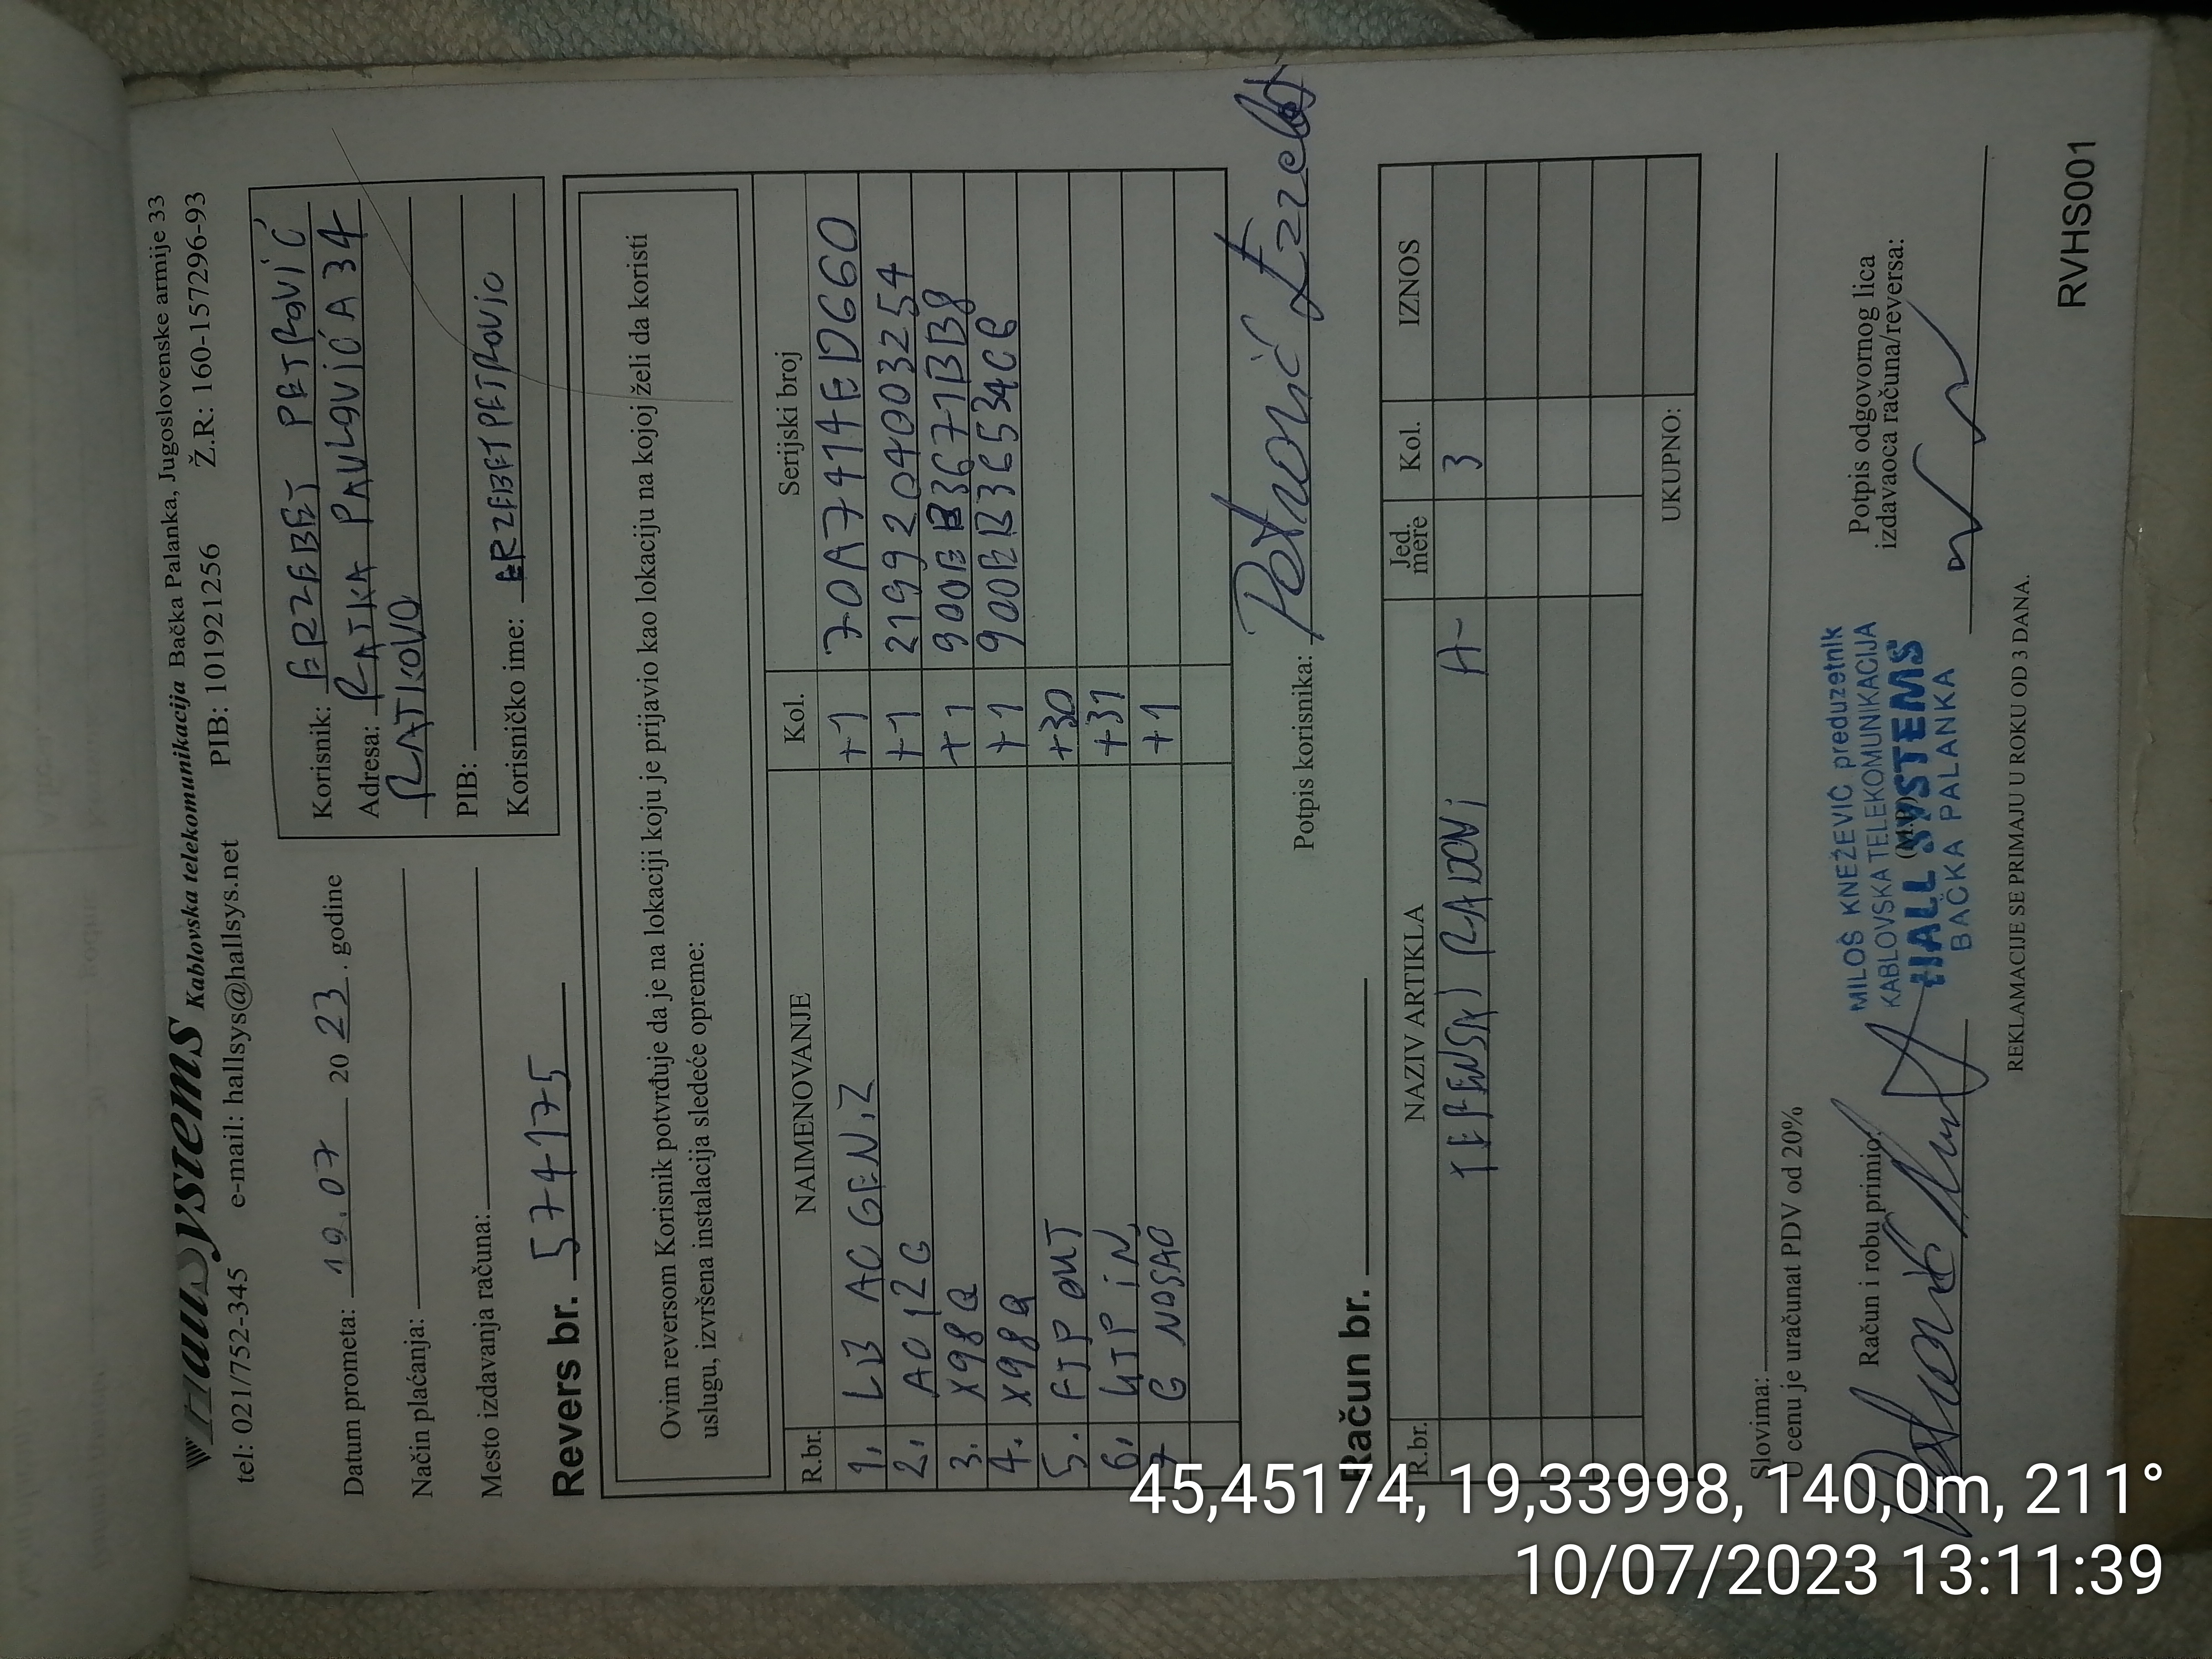 Hallsystems Kablovska telekomunikacija Bačka Palanka, Jugoslovenske armije 33
tel: 021/752-345 e-mail: hallsys@hallsys.net PIB: 101921256 Ž.R: 160-157296-93
Datum prometa: 10.07 20 23. godine
Način plaćanja:
Mesto izdavanja računa:
Korisnik: ERZEBET PETROVIĆ
Adresa: RATKA PAVLOVIĆA 34
RATKOVO
PIB:
Korisničko ime: ERZEBETPETROVIC
Revers br. 574175
Ovim reversom Korisnik potvrđuje da je na lokaciji koju je prijavio kao lokaciju na kojoj želi da koristi
uslugu, izvršena instalacija sledeće opreme:
R.br. NAIMENOVANJE Kol. Serijski broj
1. LB AC GEN.2 +1 70A7414ED660
2. AC12G +1 2199204003254
3. X98Q +1 900EB3671BB8
4. X98Q +1 900EB36534CB
5. FTP OUT +30
6. UTP iN +31
7 G NOSAO +1
Potpis korisnika: Petrović Erzebet
Račun br.
R.br. NAZIV ARTIKLA Jed. mere Kol. IZNOS
TERENSKI RADOVI A- 3
UKUPNO:
Slovima:
U cenu je uračunat PDV od 20%
Račun i robu primio:
Petrović
MILOŠ KNEŽEVIĆ preduzetnik
KABLOVSKA TELEKOMUNIKACIJA
HALL SYSTEMS
(M.P.)
BAČKA PALANKA
Potpis odgovornog lica
izdavaoca računa/reversa:
REKLAMACIJE SE PRIMAJU U ROKU OD 3 DANA.
RVHS001
45,45174, 19,33998, 140,0m, 211°
10/07/2023 13:11:39